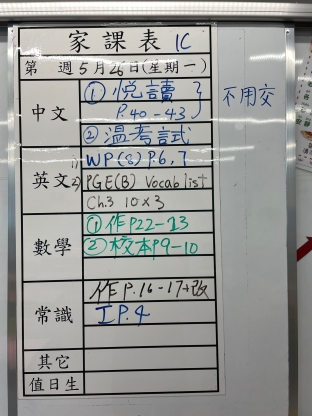 家課表 1C
第 週 5月26日(星期一)
中文
① 悅讀
P.40-43
不用交
② 溫考試
英文
1) WP(8) P.6,7
2) PGE(B) Vocab list
Ch.3 10×3
數學
① 作P22-13
② 校本P9-10
常識
作P.16-17+改
工P.4
其它
值日生